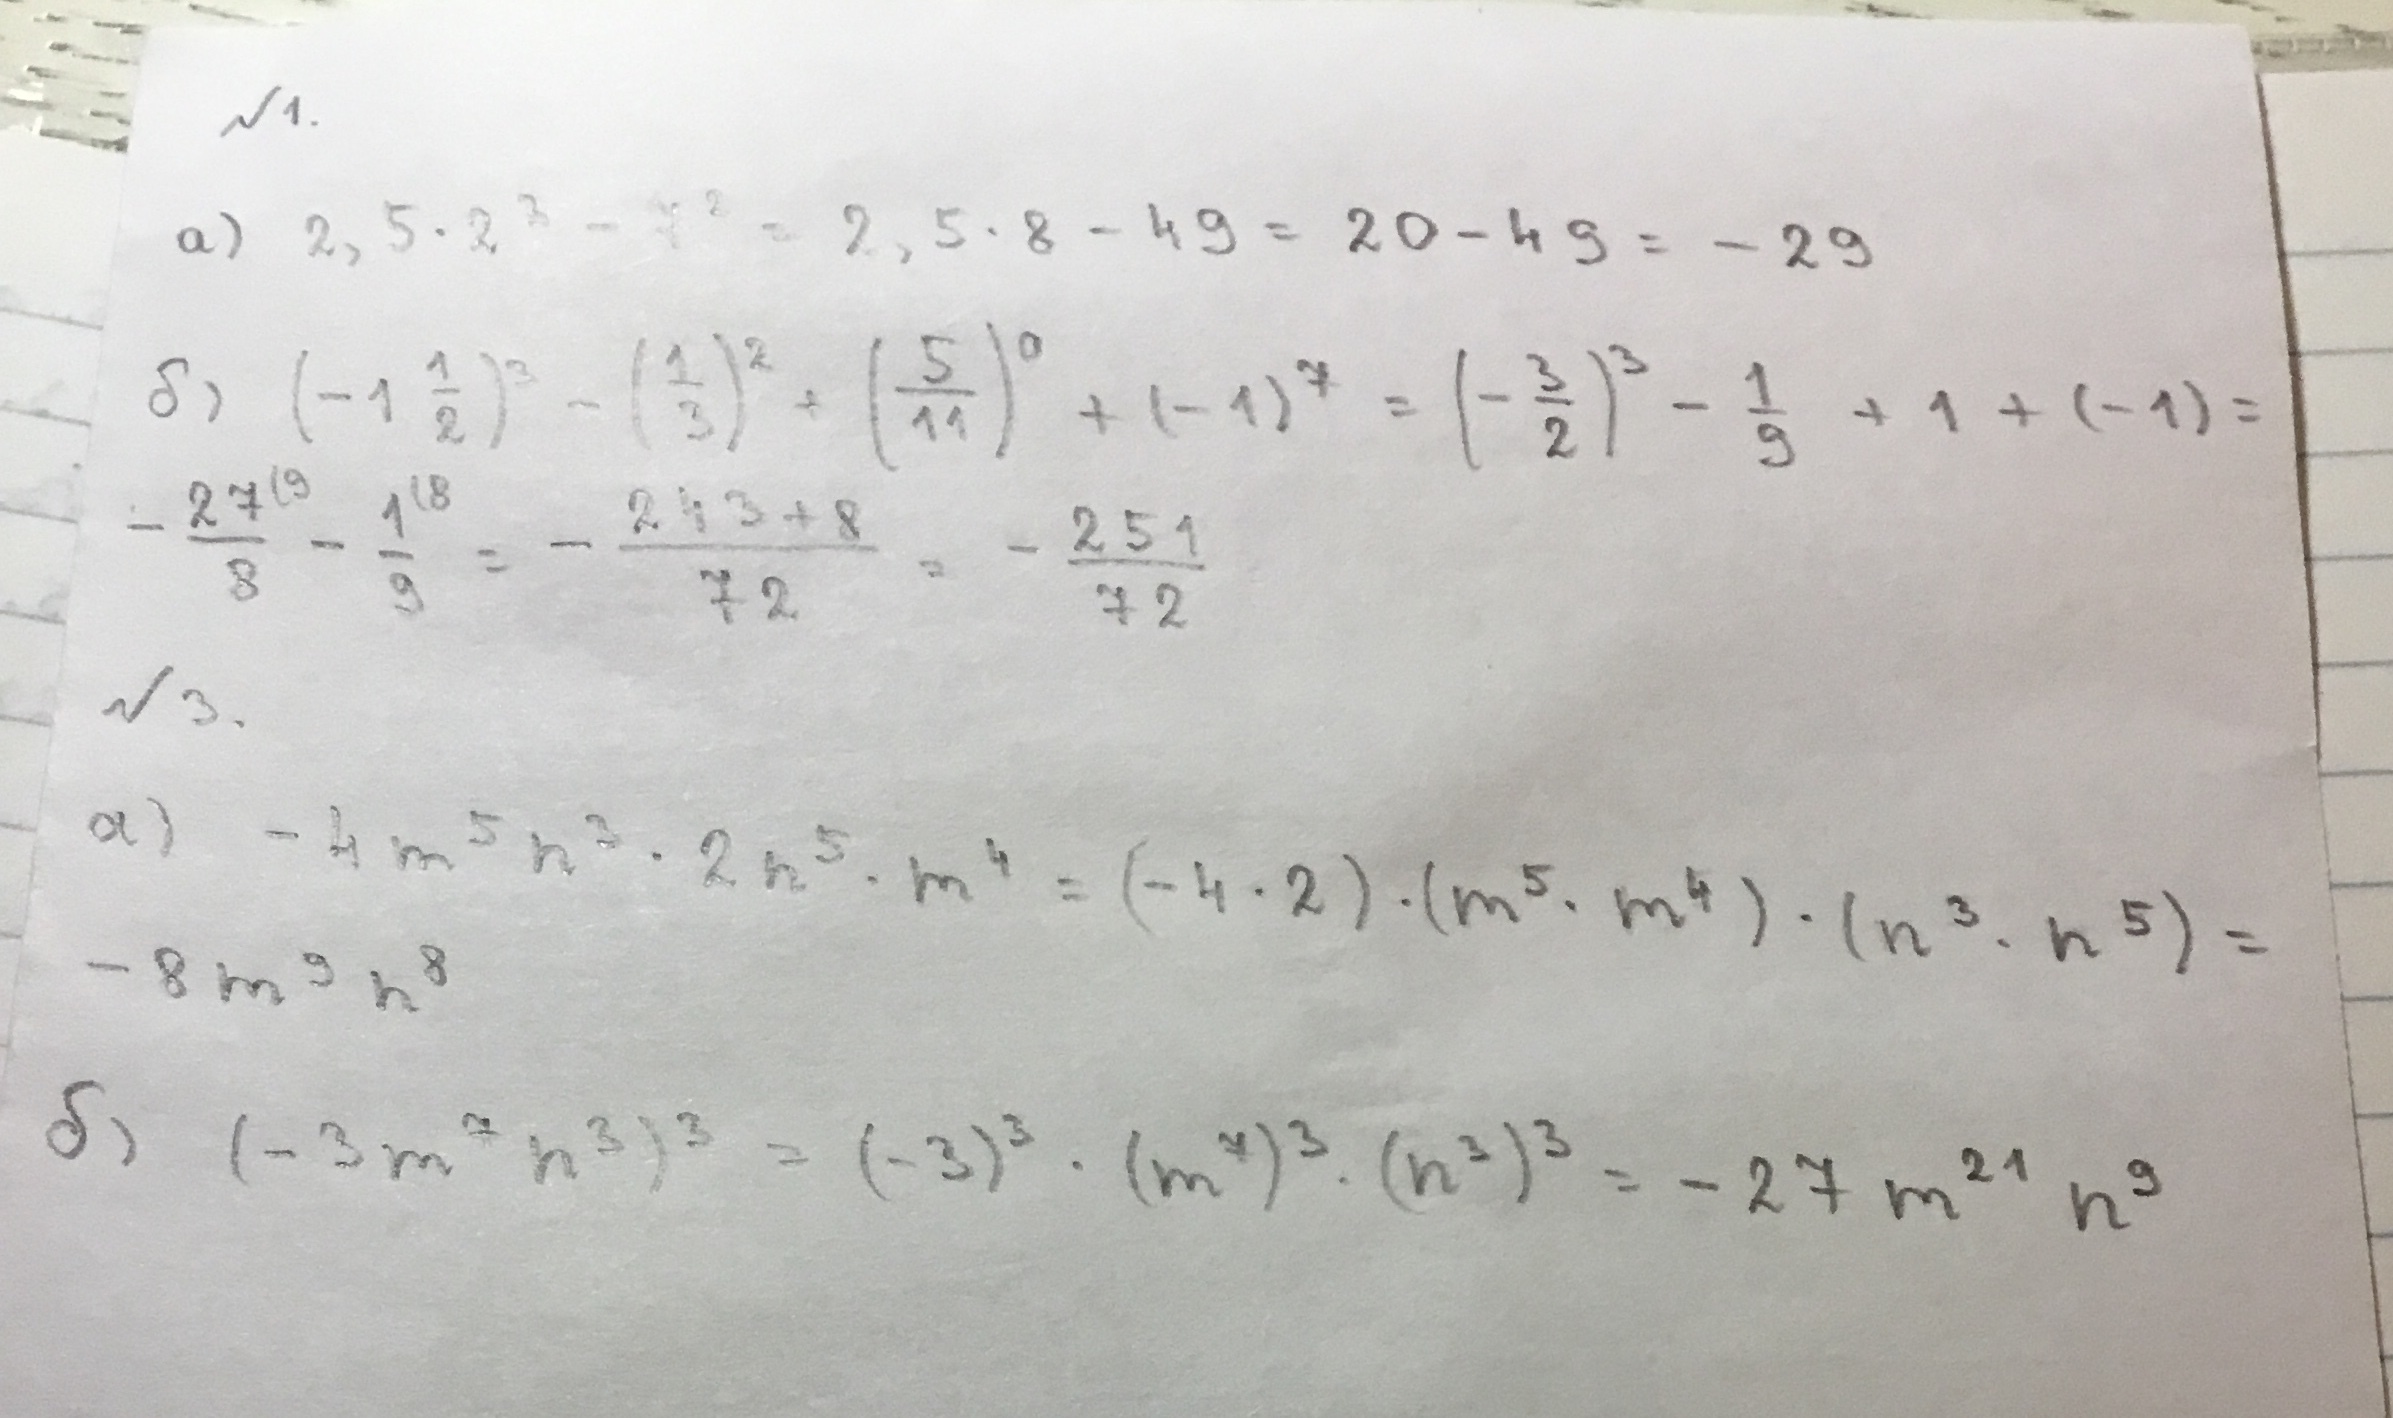 №1.
а) 2,5·2³ - 7² = 2,5·8 - 49 = 20 - 49 = -29
б) (-1 1/2)³ - (1/3)² + (5/11)⁰ + (-1)⁷ = (-3/2)³ - 1/9 + 1 + (-1) =
- 27⁽⁹/8 - 1⁽⁸/9 = - (243+8)/72 = - 251/72
№3.
а) -4m⁵n³·2n⁵·m⁴ = (-4·2)·(m⁵·m⁴)·(n³·n⁵) =
-8m⁹n⁸
б) (-3m⁷n³)³ = (-3)³·(m⁷)³·(n³)³ = -27m²¹n⁹